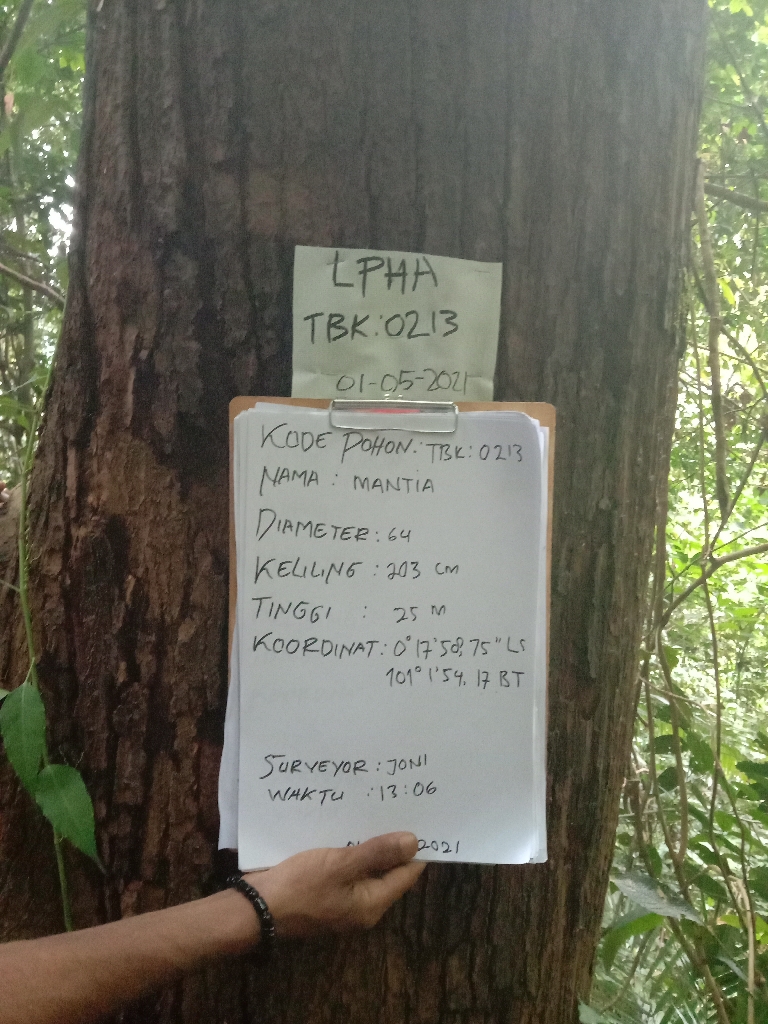 LPHA
TBK:0213
01-05-2021
KODE POHON: TBK:0213
NAMA : MANTIA
DIAMETER: 64
KELILING : 203 cm
TINGGI : 25 M
KOORDINAT: 0°17'58,75" LS
101°1'54,17 BT
SURVEYOR: JONI
WAKTU :13:06
2021